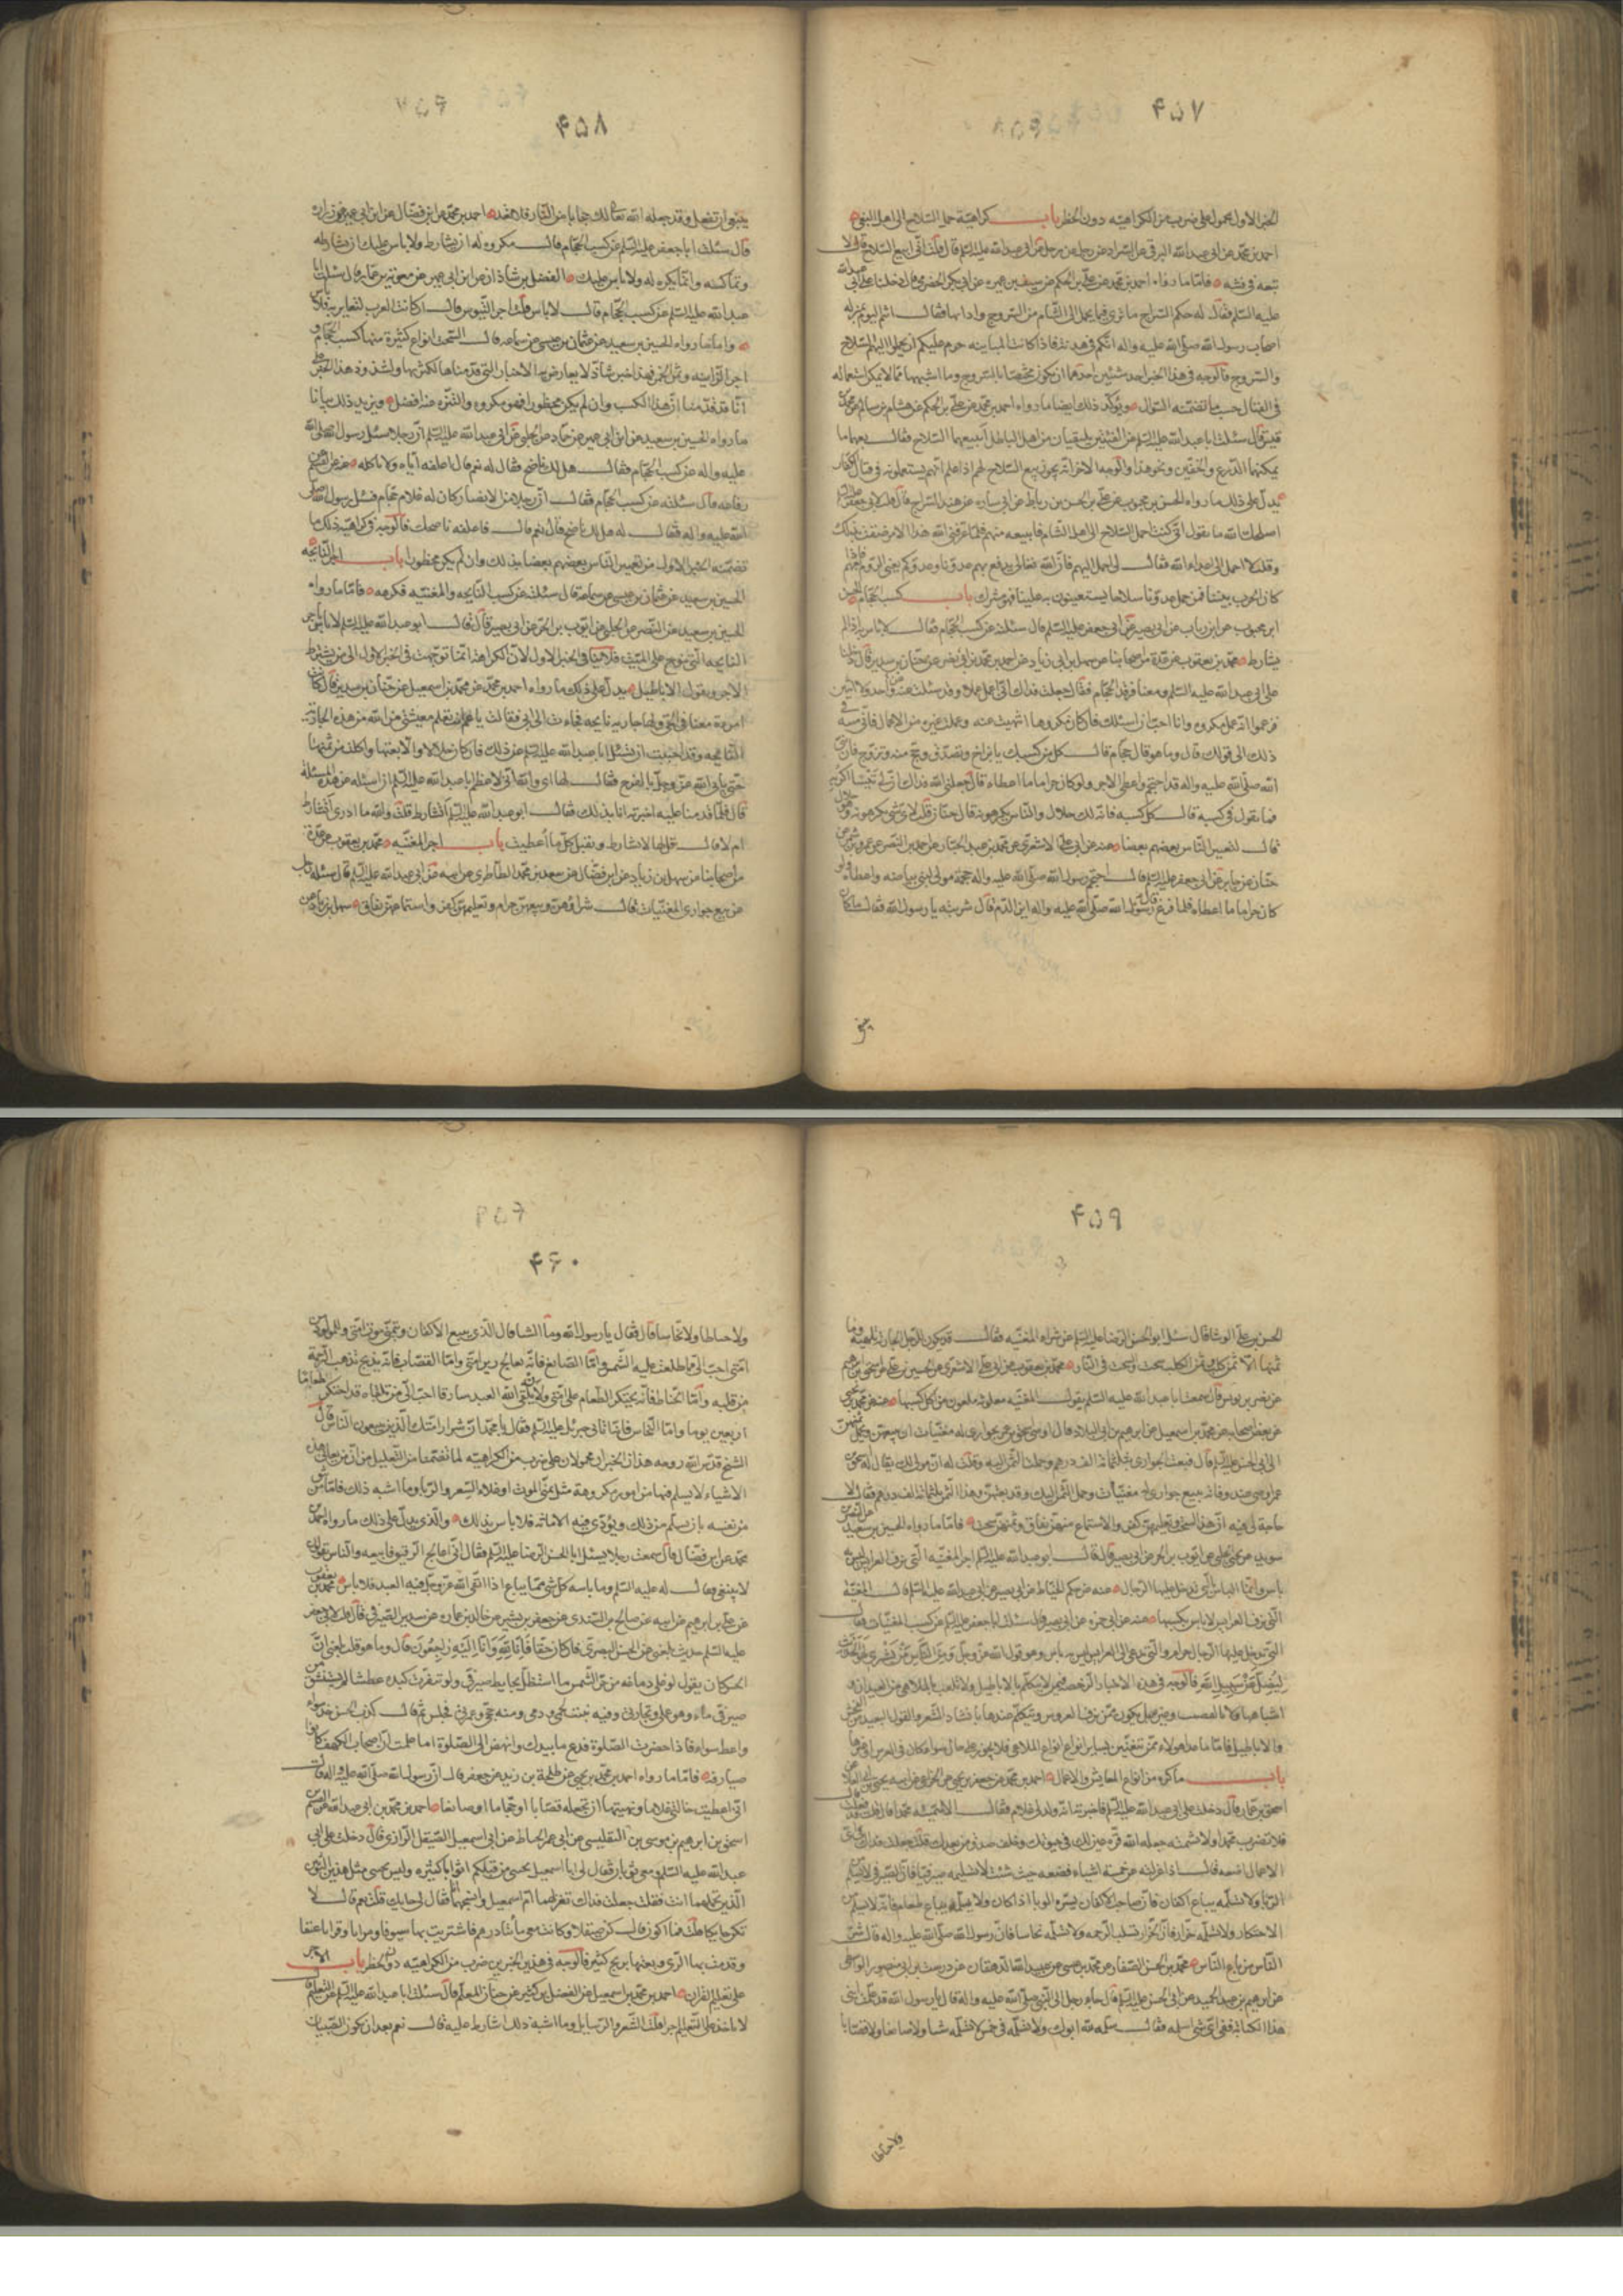 ۴۵۷
الخبر الاول محمول على ضرب من الكراهية دون الحظر باب كراهية حمل السلاح الى اهل البغى
احمد بن محمد عن ابى عبد الله البرقى عن السراد عن رجل عن ابى عبد الله عليه السلم قال قلت انى ابيع السلاح قال لا
تبعه فى فتنة فاما ما رواه احمد بن محمد عن على بن الحكم عن سيف بن عميره عن ابى بكر الحضرمى قال دخلنا على ابى عبد الله
عليه السلم فقال له حكم السراج ما ترى فيما يحمل الى الشام من السروج واداتها فقال انتم اليوم بمنزلة
اصحاب رسول الله صلى الله عليه واله انكم فى هدنة فاذا كانت المباينه حرم عليكم ان تحملوا اليهم السلاح
والسروج فالوجه فى هذا الخبر احد شيئين احدهما ان يكون مختصا بالسروج وما اشبهها مما لا يمكن استعماله
فى القتال حسب ما تضمنه السؤال ويؤكد ذلك ايضا ما رواه احمد بن محمد عن على بن الحكم عن هشام بن سالم عن محمد بن
قيس قال سئلت ابا عبد الله عليه السلم عن الفئتين يلتقيان من اهل الباطل ابيعهما السلاح فقال بعهما ما
يمكنهما الدرع والخفين ونحو هذا والوجه الاخر انه يجوز بيع السلاح لهم اذا علم انهم يستعملونه فى قتال الكفار
يدل على ذلك ما رواه الحسن بن محبوب عن على بن الحسن بن رباط عن ابى ساره عن هند السراج قال قلت لابى جعفر عليه السلم
اصلحك الله ما تقول انى كنت احمل السلاح الى اهل الشام فابيعه منهم فلما عرفنى الله هذا الامر ضقت بذلك
وقلت لا احمل الى اعداء الله فقال لى احمل اليهم فان الله تعالى يدفع بهم عدونا وعدوكم يعنى الروم فاذا
كان الحرب بيننا فمن حمل عدونا سلاحا يستعينون به علينا فهو مشرك باب كسب الحجام الحسن
ابن محبوب عن ابن رياب عن ابى بصير عن ابى جعفر عليه السلم قال سئلته عن كسب الحجام فقال لا باس به اذا لم
يشارط محمد بن يعقوب عن عدة من اصحابنا عن سهل بن زياد عن احمد بن محمد بن ابى نصر عن حنان بن سدير قال دخلنا
على ابى عبد الله عليه السلم ومعنا فرقد الحجام فقال جعلت فداك انى اعمل عملا وقد سئلت عنه غير واحد ولا اثنين
فزعموا انه عمل مكروه وانا احب ان اسئلك فان كان مكروها انتهيت عنه وعملت غيره من الاعمال فانى منته فى
ذلك الى قولك قال وما هو قال حجام قال كل من كسبك يا بن اخ وتصدق وحج منه وتزوج فان نبى
الله صلى الله عليه واله قد احتجم واعطى الاجر ولو كان حراما ما اعطاه قال جعلنى الله فداك ان لى تيسا اكريه
فما تقول فى كسبه قال كل كسبه فانه لك حلال والناس يكرهونه قال حنان قلت لاى شئ يكرهونه وهو حلال
قال لتعيير الناس بعضهم بعضا وعنه عن ابى على الاشعرى عن محمد بن عبد الجبار عن احمد بن النضر عن عمرو بن شمر عن
جابر عن ابى جعفر عليه السلم قال احتجم رسول الله صلى الله عليه واله حجمه مولى لبنى بياضه واعطاه ولو
كان حراما ما اعطاه فلما فرغ قال رسول الله صلى الله عليه واله اين الدم قال شربته يا رسول الله فقال ما كان
ينبغى
۴۵۸
ينبغى ان تفعل وقد جعله الله تعالى لك حجابا من النار فلا تعد احمد بن محمد عن ابن فضال عن ابن ابى عمير عن زرارة
قال سئلت ابا جعفر عليه السلم عن كسب الحجام فقال مكروه له ان يشارط ولا باس عليك ان تشارطه
وتماكسه وانما يكره له ولا باس عليك الفضل بن شاذان عن ابن ابى عمير عن معوية بن عمار قال سئلت ابا
عبد الله عليه السلم عن كسب الحجام قال لا باس به قلت اجر التيوس قال ان كانت العرب لتعاير به فلا باس
واما ما رواه الحسين بن سعيد عن عثمان بن عيسى عن سماعة قال السحت انواع كثيرة منها كسب الحجام و
اجر الزانيه وثمن الخمر فهذا خبر شاذ لا يعارض به الاخبار التى قدمناها لكثرتها ولشذوذ هذا الخبر على
انا قد قدمنا ان هذا الكسب وان لم يكن محظورا فهو مكروه والتنزه عنه افضل ويزيد ذلك بيانا
ما رواه الحسين بن سعيد عن ابن ابى عمير عن حماد عن الحلبى عن ابى عبد الله عليه السلم ان رجلا سئل رسول الله صلى الله
عليه واله عن كسب الحجام فقال هل لك ناضح فقال له نعم قال اعلفه اياه ولا تاكله عنه عن القسم عن
رفاعه قال سئلته عن كسب الحجام فقال ان رجلا من الانصار كان له غلام حجام فسئل رسول الله صلى
الله عليه واله فقال له هل لك ناضح قال نعم قال فاعلفه ناضحك فالوجه فى كراهية ذلك ما
تضمنه الخبر الاول من تعيير الناس بعضهم بعضا بذلك وان لم يكن محظورا باب اجر النايحه
الحسين بن سعيد عن عثمان بن عيسى عن سماعة قال سئلته عن كسب النايحه والمغنيه فكرهه فاما ما رواه
الحسين بن سعيد عن النضر عن الحلبى عن ايوب بن الحر عن ابى بصير قال قال ابو عبد الله عليه السلم لا باس باجر
النايحه التى تنوح على الميت فلا ينافى الخبر الاول لان الكراهة انما توجهت فى الخبر الاول الى من يشترط
الاجر ويقول الاباطيل يدل على ذلك ما رواه احمد بن محمد عن محمد بن اسمعيل عن حنان بن سدير قال كانت
امرءة معنا فى الحى ولها جارية نايحه فجاءت الى ابى فقالت يا عم انت تعلم معيشتى من الله من هذه الجارية
النايحه وقد احببت ان تسئل ابا عبد الله عليه السلم عن ذلك فان كان حلالا والا بعتها واكلت من ثمنها
حتى ياتى الله عز وجل بالفرج فقال لها ابى والله انى لاعظم ابا عبد الله عليه السلم ان اسئله عن هذه المسئلة
قال فلما قدمنا عليه اخبرته انا بذلك فقال ابو عبد الله عليه السلم اتشارط قلت والله ما ادرى اتشارط
ام لا قال قل لها لا تشارط وتقبل كل ما اعطيت باب اجر المغنيه محمد بن يعقوب عن عدة
من اصحابنا عن سهل بن زياد عن ابن فضال عن سعيد بن محمد الطاطرى عن ابيه عن ابى عبد الله عليه السلم قال سئله رجل
عن بيع جوارى المغنيات فقال شراؤهن وبيعهن حرام وتعليمهن كفر واستماعهن نفاق سهل بن زياد عن
۴۵۹
الحسن بن على الوشا قال سئل ابو الحسن الرضا عليه السلم عن شراء المغنيه فقال قد يكون للرجل الجارية تلهيه وما
ثمنها الا ثمن كلب وثمن الكلب سحت والسحت فى النار محمد بن يعقوب عن ابى على الاشعرى عن الحسن بن على عن اسحق بن ابرهيم
عن نصر بن قابوس قال سمعت ابا عبد الله عليه السلم يقول المغنيه ملعونة ملعون من اكل كسبها عنه عن محمد بن يحيى
عن بعض اصحابه عن محمد بن اسمعيل عن ابرهيم بن ابى البلاد قال اوصى اسحق بن عمر بجوارى له مغنيات ان يبعن ويحمل ثمنهن
الى ابى الحسن عليه السلم قال فبعت الجوارى بثلثمائة الف درهم وحملت الثمن اليه وقلت له ان مولى لك يقال له اسحق بن
عمر اوصى عند وفاته ببيع جوارى له مغنيات وحمل الثمن اليك وقد بعتهن وهذا الثمن ثلثمائة الف درهم فقال لا
حاجة لى فيه ان هذا سحت وتعليمهن كفر والاستماع منهن نفاق وثمنهن سحت فاما ما رواه الحسين بن سعيد عن النضر بن
سويد عن يحيى الحلبى عن ايوب بن الحر عن ابى بصير قال قال ابو عبد الله عليه السلم اجر المغنيه التى تزف العرايس ليس به
باس وليست بالتى تدخل عليها الرجال عنه عن حكم الخياط عن ابى بصير عن ابى عبد الله عليه السلم قال المغنية
التى تزف العرايس لا باس بكسبها وعنه عن على بن ابى حمزه عن ابى بصير قال سئلت ابا جعفر عليه السلم عن كسب المغنيات فقال
التى يدخل عليها الرجال حرام والتى تدعى الى العرايس ليس به باس وهو قول الله عز وجل ومن الناس من يشترى لهو الحديث
ليضل عن سبيل الله فالوجه فى هذه الاخبار الرخصة فيمن لا يتكلم بالاباطيل ولا تلعب بالملاهى من العيدان و
اشباهها ولا بالقصب وغيره بل يكون ممن تزف العروس وتتكلم عندها بانشاد الشعر والقول البعيد من الفحش
والاباطيل فاما ما عدا هؤلاء ممن تتغنين بساير انواع الملاهى فلا يجوز على حال سواء كان فى العرايس او غيرها
باب ما كره من انواع المعايش والاعمال احمد بن محمد عن جعفر بن يحيى الخزاعى عن ابيه يحيى بن ابى العلا عن
اسحق بن عمار قال دخلت على ابى عبد الله عليه السلم فاخبرته انه ولد لى غلام فقال الا سميته محمدا قال قلت قد فعلت قال
فلا تضرب محمدا ولا تشتمه جعله الله قرة عين لك فى حيوتك وخلف صدق من بعدك قلت جعلت فداك فى اى
الاعمال اضعه قال اذا عزلته عن خمسة اشياء فضعه حيث شئت لا تسلمه صيرفيا فان الصيرفى لا يسلم من
الربا ولا تسلمه بياع اكفان فان صاحب الاكفان يسره الوبا اذا كان ولا تسلمه بياع طعام فانه لا يسلم من
الاحتكار ولا تسلمه جزارا فان الجزار تسلب الرحمة ولا تسلمه نخاسا فان رسول الله صلى الله عليه واله قال شر
الناس من باع الناس محمد بن الحسن الصفار عن محمد بن عيسى عن عبيد الله الدهقان عن درست بن ابى منصور الواسطى
عن ابرهيم بن عبد الحميد عن ابى الحسن عليه السلم قال جاء رجل الى النبى صلى الله عليه واله قال يا رسول الله قد علمت ابنى
هذا الكتابة ففى اى شئ اسلمه فقال سلمه لله ابوك ولا تسلمه فى خمس لا تسلمه سباء ولا صايغا ولا قصابا
ولا حناطا
۴۶۰
ولا حناطا ولا نخاسا قال فقال يا رسول الله وما السبا قال الذى يبيع الاكفان ويتمنى موت امتى وللمولود من
امتى احب الى مما طلعت عليه الشمس واما الصايغ فانه يعالج رين امتى واما القصاب فانه يذبح حتى تذهب الرحمة
من قلبه واما الحناط فانه يحتكر الطعام على امتى ولان يلقى الله العبد سارقا احب الى من ان يلقاه قد احتكر طعاما
اربعين يوما واما النخاس فانه اتانى جبرئيل عليه السلم فقال يا محمد ان شرار امتك الذين يبيعون الناس قال
الشيخ قدس الله روحه هذان الخبران محمولان على ضرب من الكراهية لما تضمنا من التعليل من ان من يعالج هذه
الاشياء لا يسلم فيها من امور مكروهة مثل تمنى الموت او غلاء السعر والربا وما اشبه ذلك فاما من
من نفسه بان يسلم من ذلك ويؤدى فيه الامانة فلا باس بذلك والذى يدل على ذلك ما رواه احمد بن
محمد عن ابن فضال قال سمعت رجلا يسئل ابا الحسن الرضا عليه السلم فقال انى اعالج الرقيق فابيعه والناس يقولون
لا ينبغى فقال له عليه السلم وما باسه كل شئ مما يباع اذا اتقى الله عز وجل فيه العبد فلا باس محمد بن يعقوب
عن على بن ابرهيم عن ابيه عن صالح بن السندى عن جعفر بن بشير عن خالد بن عماره عن سدير الصيرفى قال قلت لابى جعفر
عليه السلم حديث بلغنى عن الحسن البصرى فان كان حقا فانا لله وانا اليه راجعون قال وما هو قلت بلغنى ان
الحسن كان يقول لو غلى دماغه من حر الشمس ما استظل بحايط صيرفى ولو تفرث كبده عطشا لم يستسق من
صيرفى ماء وهو عملى وتجارتى وفيه نبت لحمى ودمى ومنه حجى وعمرتى فجلس ثم قال كذب الحسن خذ سواء
واعط سواء فاذا حضرت الصلوة فدع ما بيدك وانهض الى الصلوة اما علمت ان اصحاب الكهف كانوا
صيارفة فاما ما رواه احمد بن محمد بن يحيى عن طلحة بن زيد عن جعفر قال ان رسول الله صلى الله عليه واله قال
انى اعطيت خالتى غلاما ونهيتها ان تجعله قصابا او حجاما او صايغا احمد بن محمد بن ابى عبد الله عن القسم بن
اسحق بن ابرهيم عن موسى بن التفليسى عن ابى عمر الحناط عن ابى اسمعيل الصيقل الرازى قال دخلت على ابى
عبد الله عليه السلم ومعى ثوبان فقال لى ابا اسمعيل يجيئنى من قبلكم اثوابا كثيرة وليس يجيئنى مثل هذين الثوبين
الذين تحملهما انت فقلت جعلت فداك تغزلهما ام اسمعيل وانسجهما انا فقال لى حايك قلت نعم قال لا
تكن حايكا قلت فما اكون قال كن صيقلا وكانت معى مائتا درهم فاشتريت بها سيوفا ومرايا وقرابا عتقا
وقدمت بها الرى وبعتها بربح كثير فالوجه فى هذين الخبرين ضرب من الكراهية دون الحظر باب الاجر
على تعليم القران احمد بن محمد بن اسمعيل عن الفضل بن كثير عن حسان المعلم قال سئلت ابا عبد الله عليه السلم عن التعليم قال
لا تاخذ على التعليم اجرا قلت الشعر والرسايل وما اشبه ذلك اشارط عليه قال نعم بعد ان يكون الصبيان